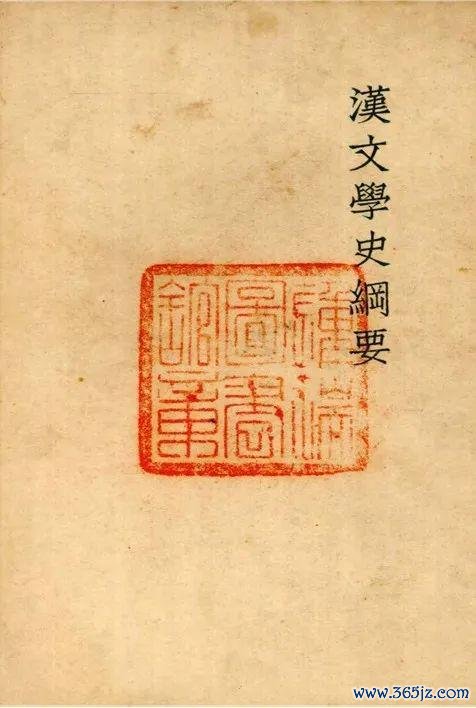 漢文學史綱要
圖書
館章
www.365jz.com